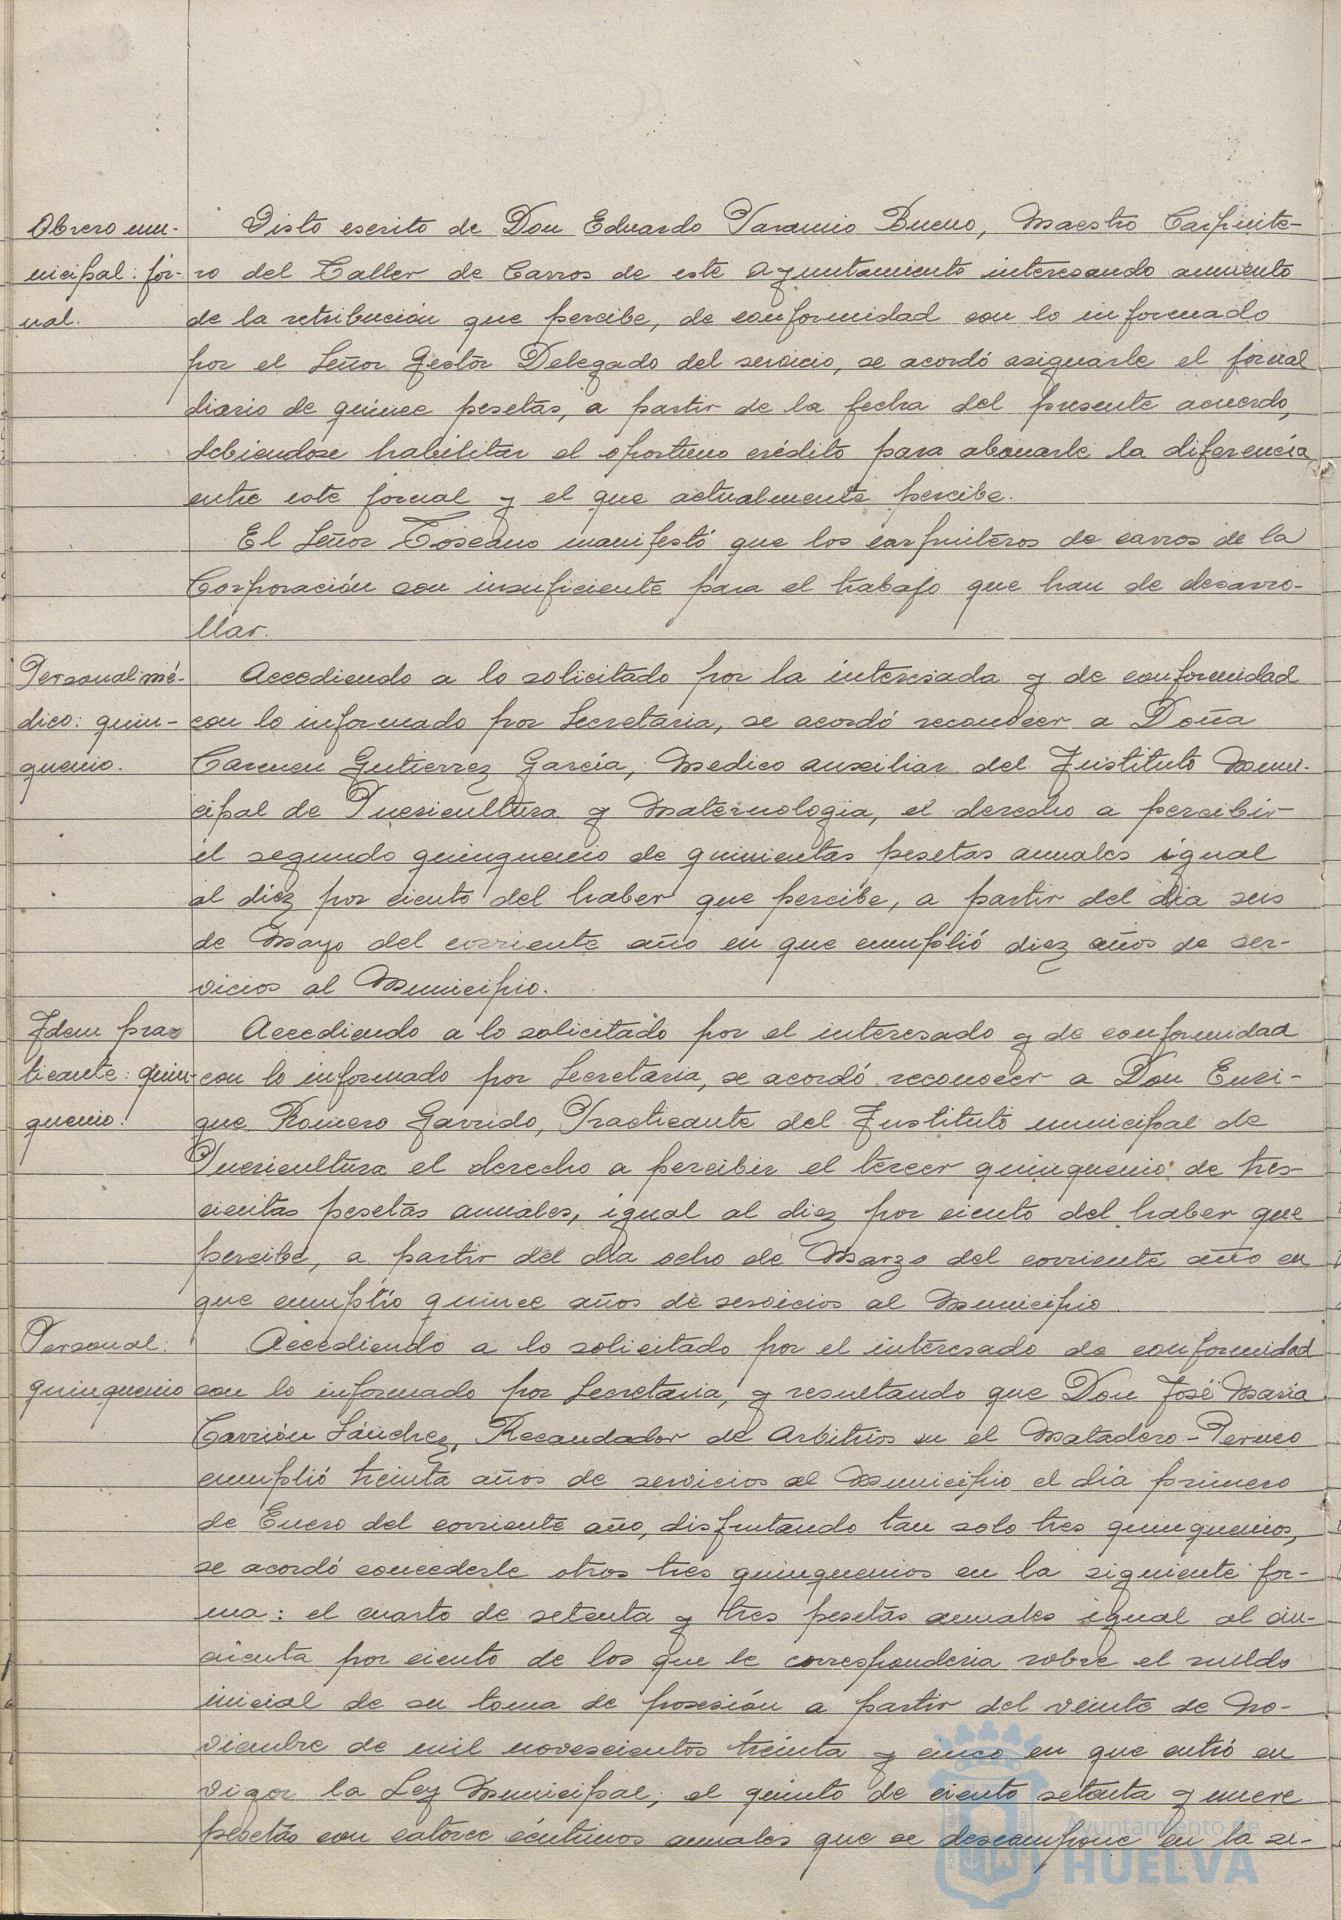 Obrero mu-
nicipal: jor-
nal.
Visto escrito de Don Eduardo Taramio Bueno, Maestro Carpinte-
ro del Taller de Carros de este Ayuntamiento interesando aumento
de la retribución que percibe, de conformidad con lo informado
por el Señor Gestor Delegado del servicio, se acordó asignarle el jornal
diario de quince pesetas, a partir de la fecha del presente acuerdo,
debiendose habilitar el oportuno crédito para abonarle la diferencia
entre este jornal y el que actualmente percibe.
El Señor Toscano manifestó que los carpinteros de carros de la
Corporación son insuficiente para el trabajo que han de desarro-
llar.
Personal mé-
dico: quin-
quenio.
Accediendo a lo solicitado por la interesada y de conformidad
con lo informado por Secretaria, se acordó reconocer a Doña
Carmen Gutierrez García, Medico auxiliar del Instituto Muni-
cipal de Puericultura y Maternologia, el derecho a percibir
el segundo quinquenio de quinientas pesetas anuales igual
al diez por ciento del haber que percibe, a partir del dia seis
de Mayo del corriente año en que cumplió diez años de ser-
vicios al Municipio.
Idem prac
ticante: quin-
quenio.
Accediendo a lo solicitado por el interesado y de conformidad
con lo informado por Secretaria, se acordó reconocer a Don Enri-
que Romero Garrido, Practicante del Instituto municipal de
Puericultura el derecho a percibir el tercer quinquenio de tres-
cientas pesetas anuales, igual al diez por ciento del haber que
percibe, a partir del día ocho de Marzo del corriente año en
que cumplió quince años de servicios al Municipio.
Personal:
quinquenio
Accediendo a lo solicitado por el interesado de conformidad
con lo informado por Secretaria, y resultando que Don José Maria
Carrión Sánchez, Recaudador de Arbitrios en el Matadero-Perneo
cumplió treinta años de servicios al Municipio el dia primero
de Enero del corriente año, disfrutando tan solo tres quinquenios,
se acordó concederle otros tres quinquenios en la siguiente for-
ma: el cuarto de setenta y tres pesetas anuales igual al cin-
cuenta por ciento de los que le corresponderia sobre el sueldo
inicial de su toma de posesión a partir del veinte de No-
viembre de mil novescientos treinta y cinco en que entró en
vigor la Ley Municipal; el quinto de ciento setenta y nueve
pesetas con catorce céntimos anuales que se descompone en la si-
Ayuntamiento de
HUELVA